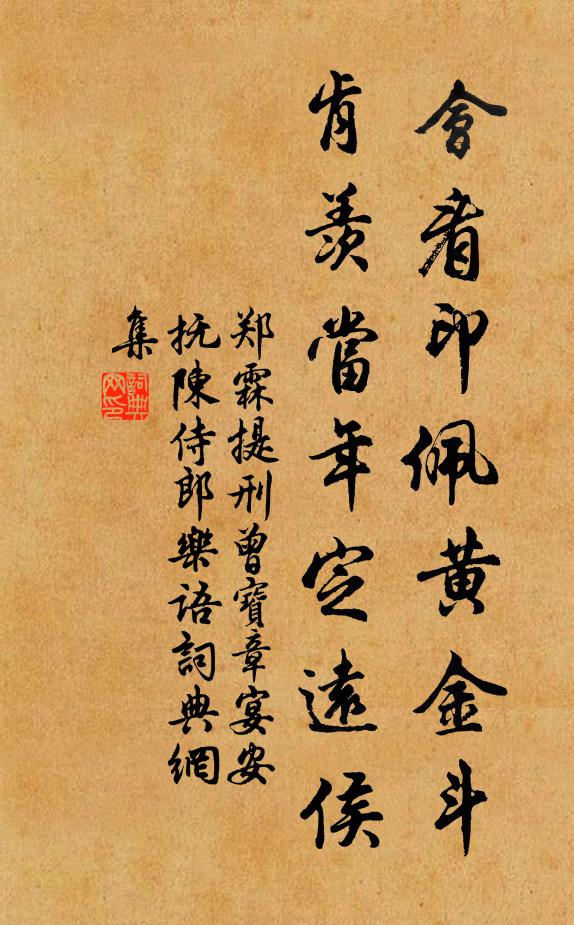 會看印佩黃金斗
肯羨當年定遠侯
郑霖提刑曾寶章宴安
抚陳侍郎樂語詞典網
集
詞典
网印